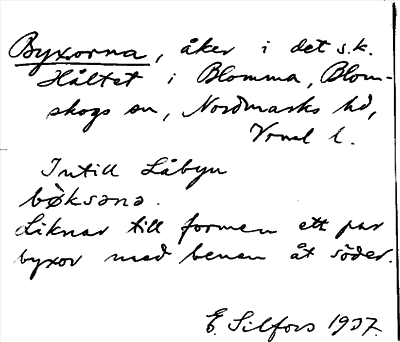 Byxorna, åker i det s.k.
Håltet i Blomma, Blom-
skogs sn, Nordmarks hd,
Vrml l.
Intill Låbyn
bøksəna.
Liknar till formen ett par
byxor med benen åt söder.
E. Silfors 1937.